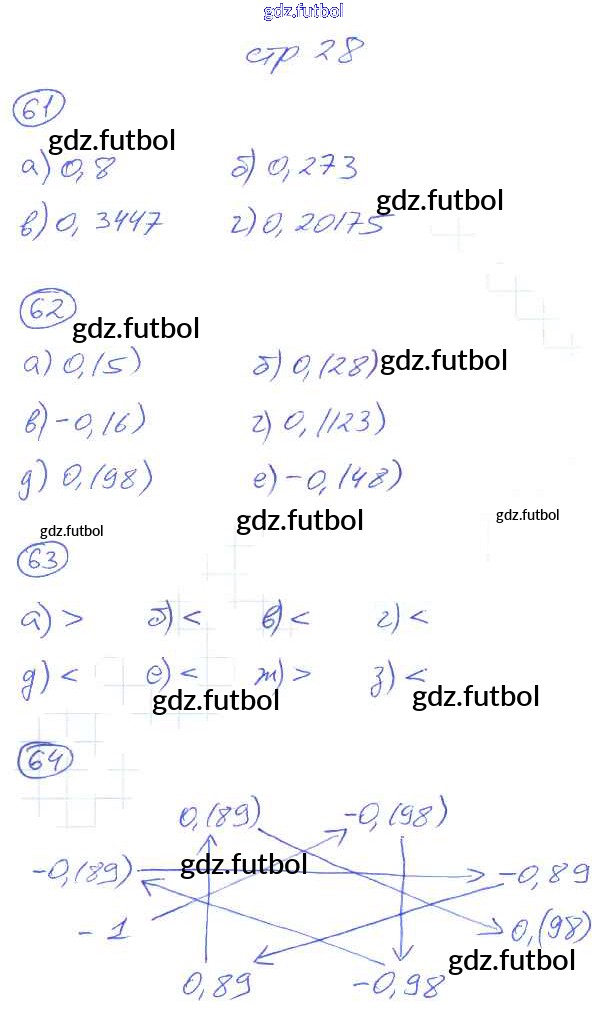 gdz.futbol
стр 28
61
gdz.futbol
а) 0,8 б) 0,273
gdz.futbol
в) 0,3447 г) 0,20175
62
gdz.futbol
а) 0,(5) б) 0,(28) gdz.futbol
в) -0,(6) г) 0,(123)
д) 0,(98) е) -0,(48)
gdz.futbol gdz.futbol gdz.futbol
63
а) > б) < в) < г) <
д) < е) < ж) > з) <
gdz.futbol gdz.futbol
64
0,(89) -0,(98)
-0,(89) gdz.futbol -0,89
-1 0,(98)
gdz.futbol
0,89 -0,98